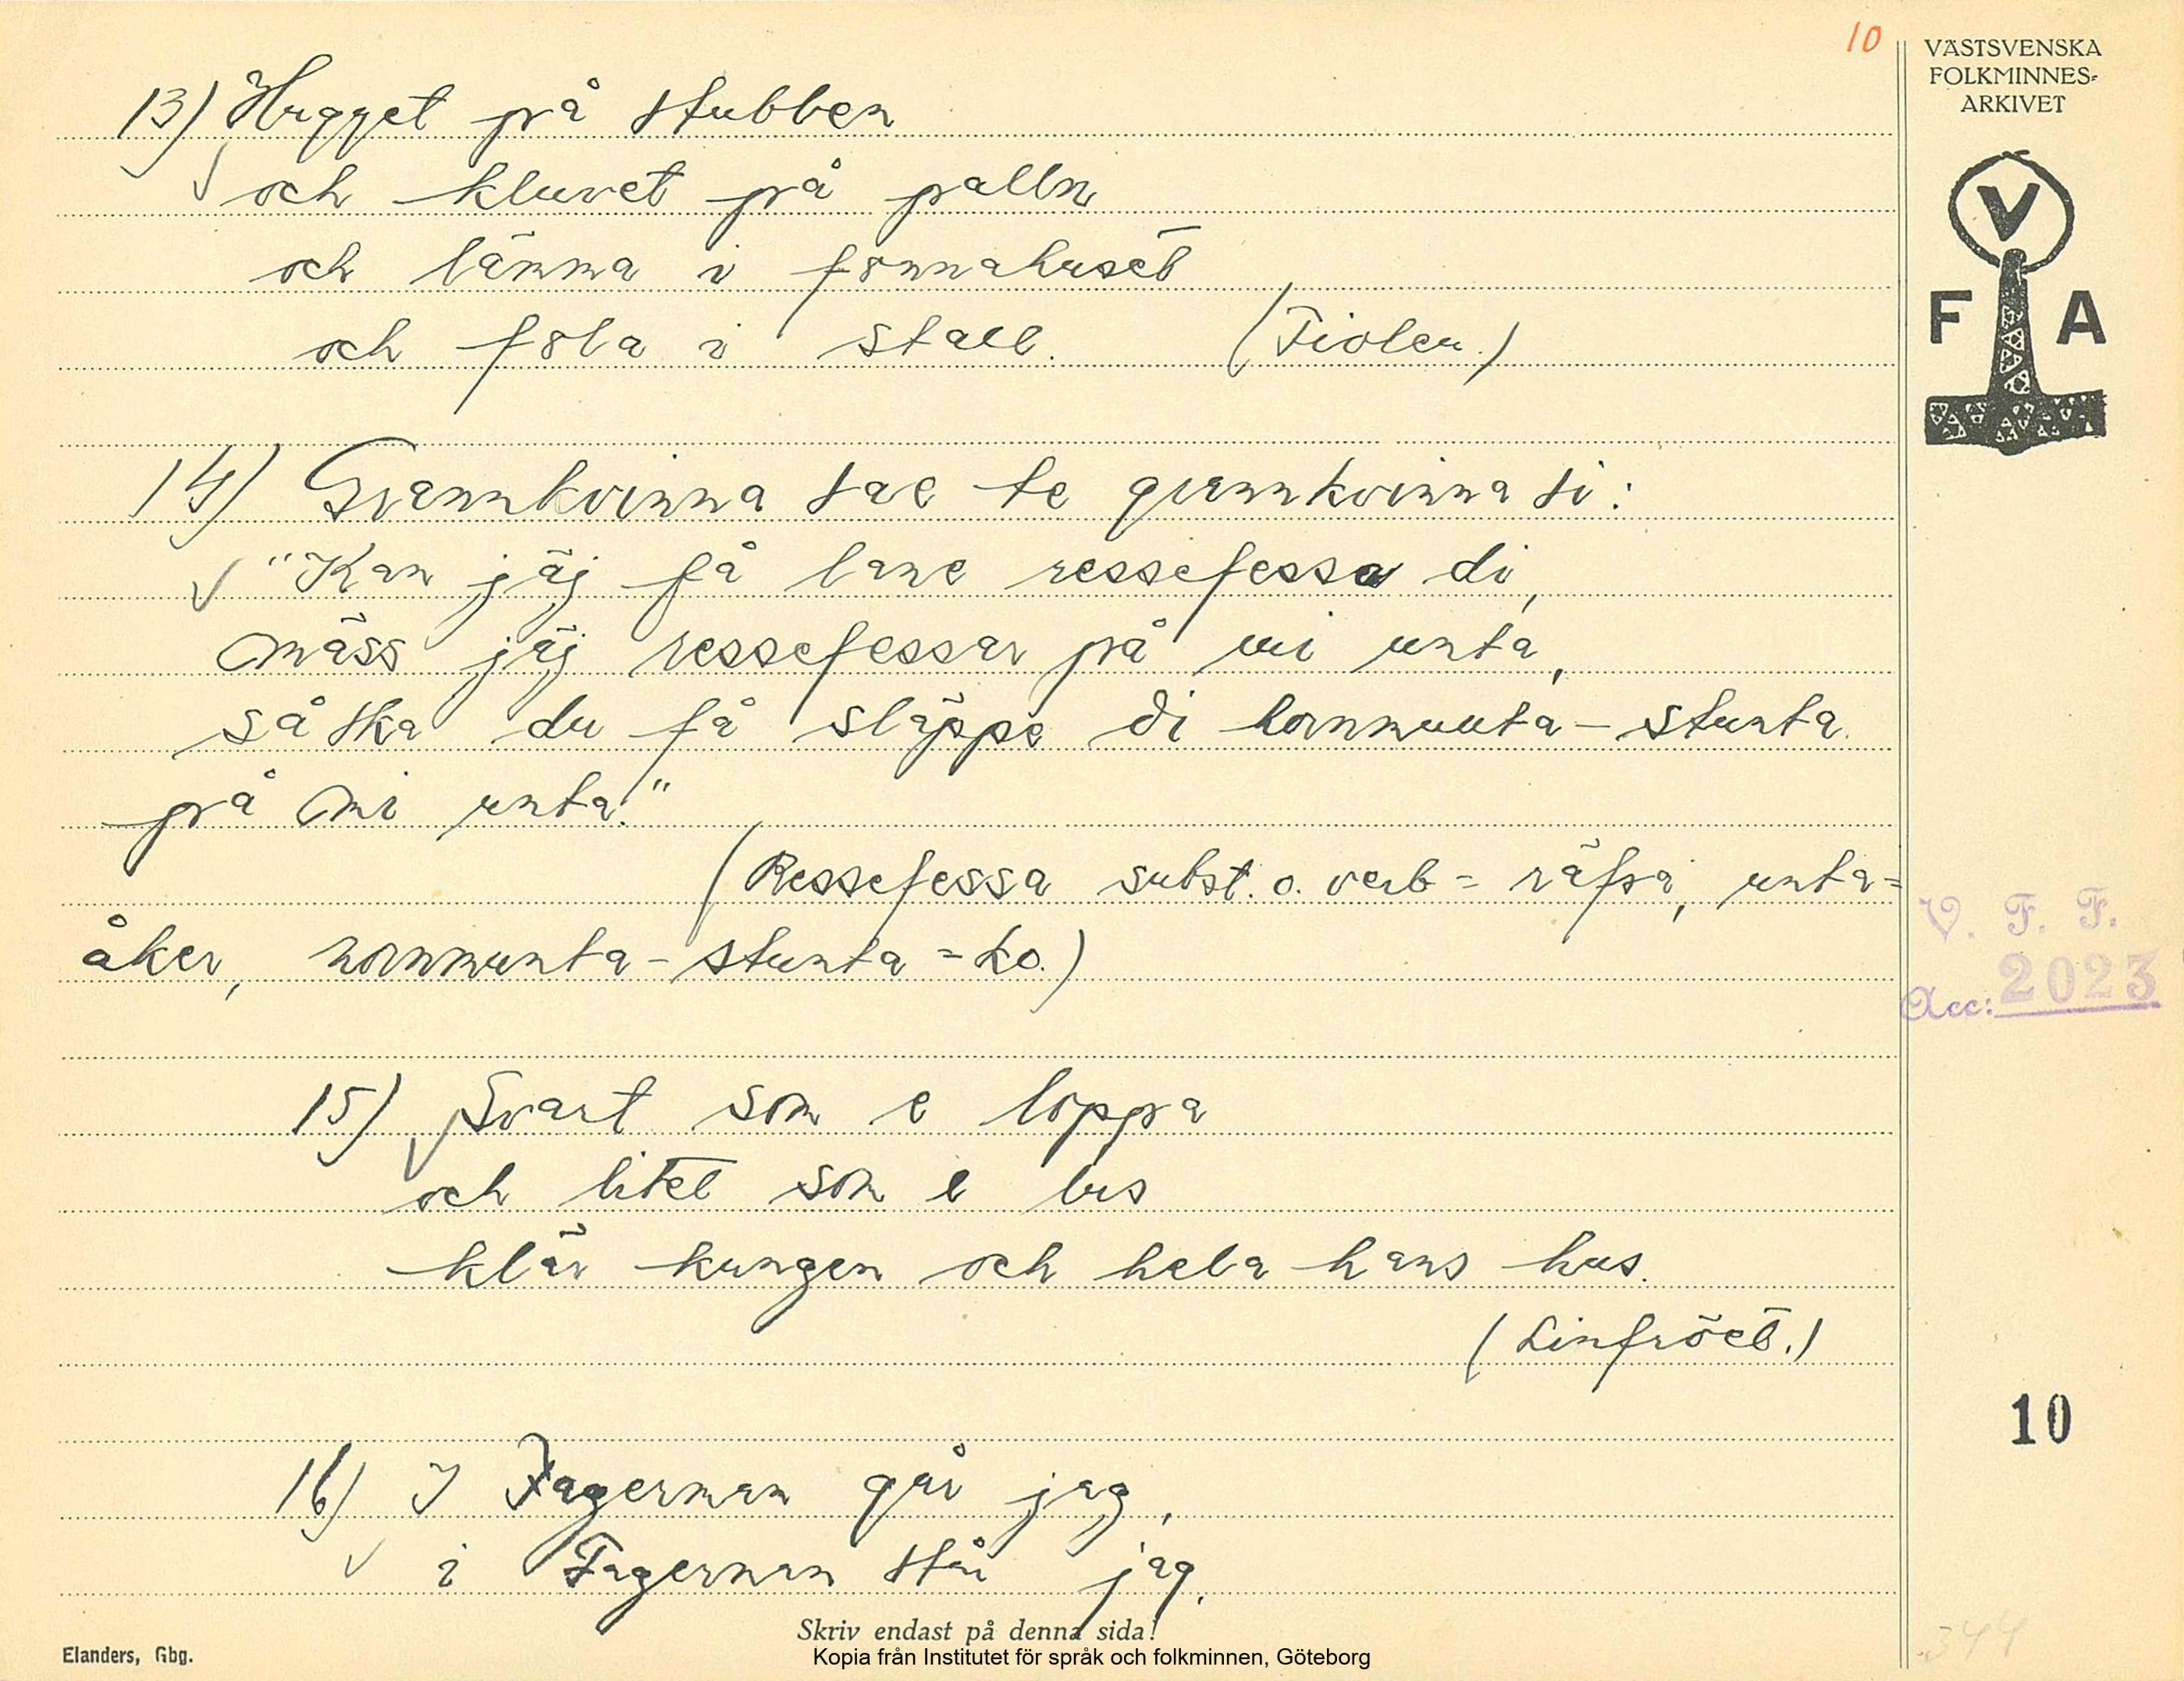 10
VÄSTSVENSKA
FOLKMINNES-
ARKIVET
V
F A
13) Hugget på stubben
och kluvet på palln
och lämna i fönnahuset
och föla i stall. (Fiolen.)
14) Grannkvinna sae te grannkvinna si:
"Kan jäj få lane ressefessa di,
mäss jäj ressefessar på mi unta,
så ska du få släppe di hornmunta-stunta
på mi unta."
(Ressefessa subst. o. verb = räfsa, unta=
åker, hornmunta-stunta = ko.)
15) Svart som e loppa
och litet som e lus
klär kungen och hela hans hus.
(Linfröet.)
16) I Fagerman går jag,
i Fagerman står jag,
V. F. F.
Acc: 2023
10
344
Skriv endast på denna sida!
Elanders, Gbg.
Kopia från Institutet för språk och folkminnen, Göteborg